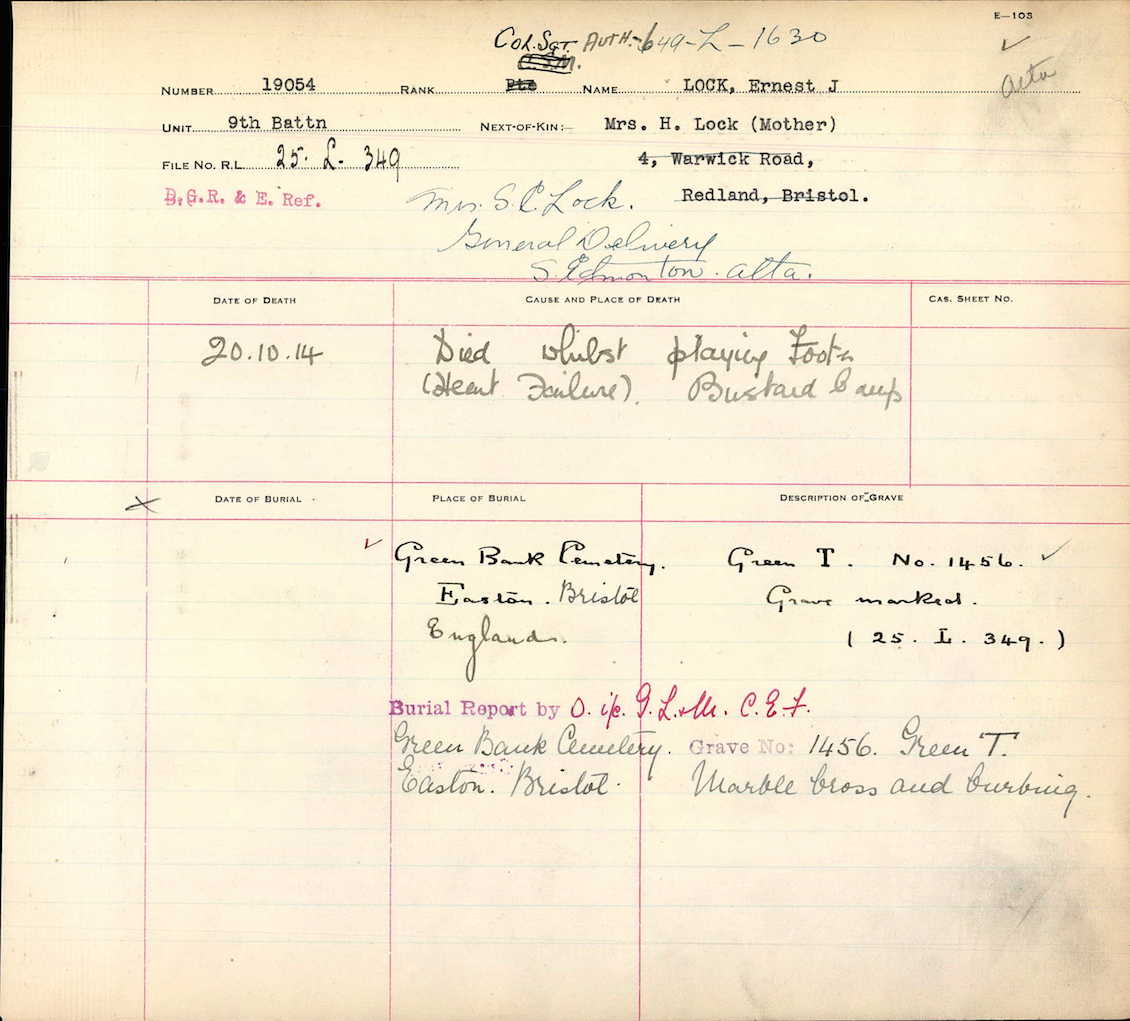 E—103
COL. SGT. AUTH.- 649-L-1630
C.S.M.
NUMBER 19054 RANK Pte NAME LOCK, Ernest J
Alta
UNIT 9th Battn NEXT-OF-KIN:— Mrs. H. Lock (Mother)
FILE NO. R.L. 25. L- 349 4, Warwick Road,
D.G.R. & E. Ref. Redland, Bristol.
Mrs. S. E. Lock.
General Delivery
S. Edmonton. Alta.
DATE OF DEATH CAUSE AND PLACE OF DEATH CAS. SHEET NO.
20.10.14 Died whilst playing Foot-
(Heart Failure). Bustard Camp
X DATE OF BURIAL PLACE OF BURIAL DESCRIPTION OF GRAVE
Green Bank Cemetery. Green T. No. 1456.
Easton. Bristol Grave marked.
England. (25. L. 349.)
Burial Report by O. i/c. G.L.&M. C.E.F.
Green Bank Cemetery. Grave No: 1456. Green T.
Easton. Bristol. Marble Cross and Curbing.